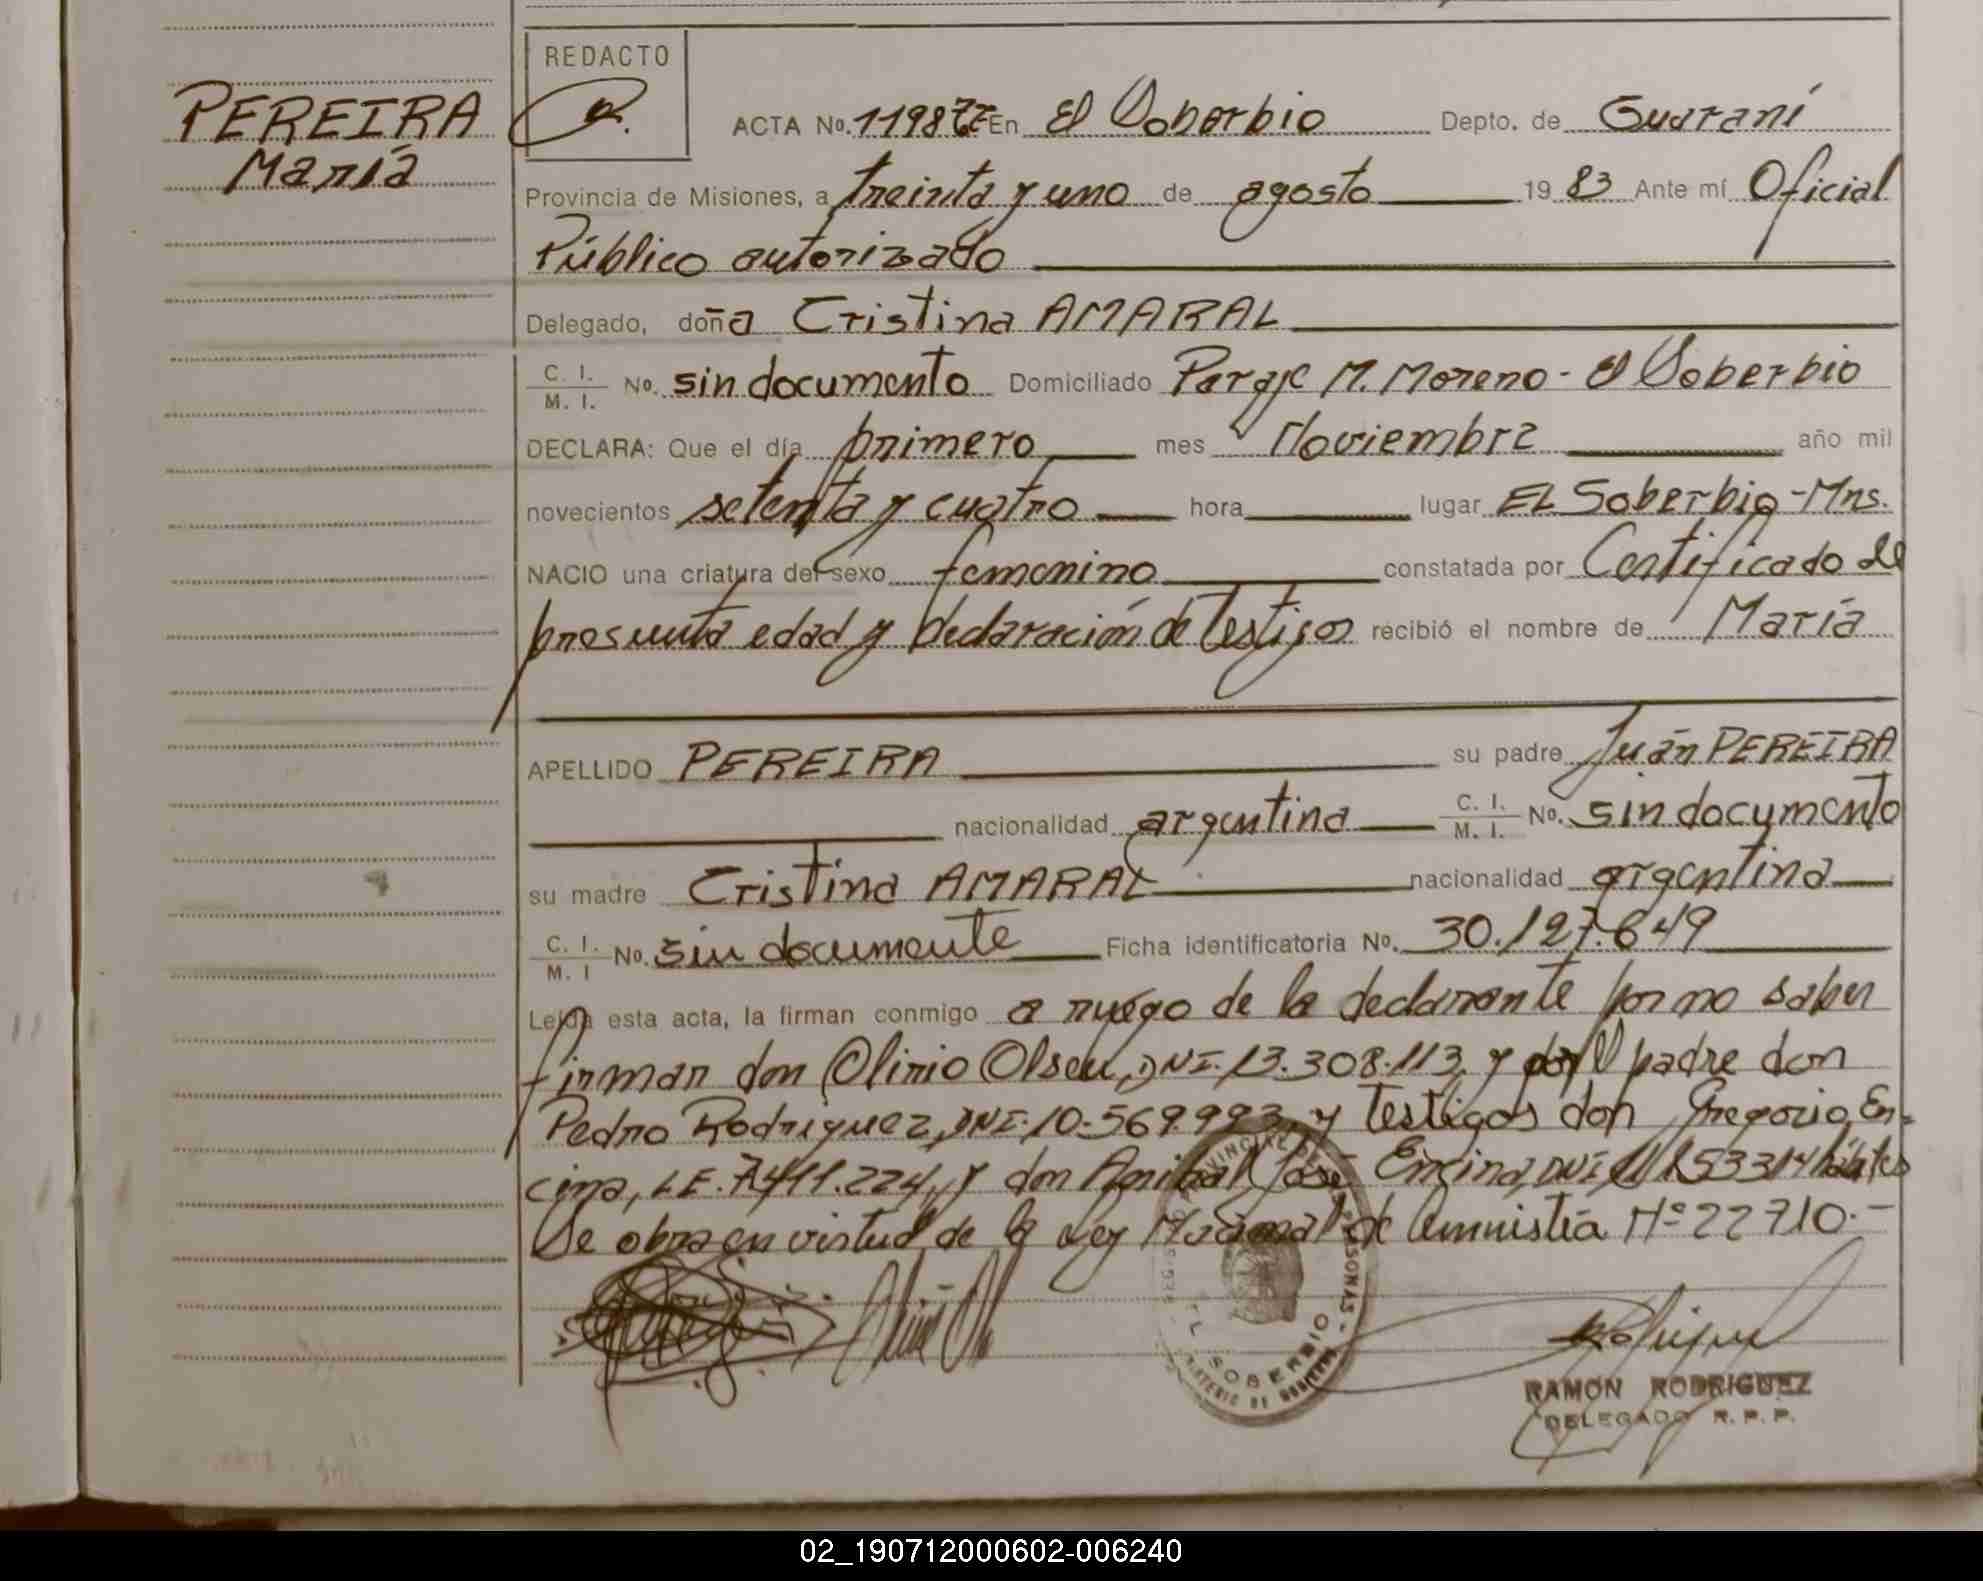 REDACTO
PEREIRA
María
ACTA No. En El Soberbio Depto. de Guaraní
Provincia de Misiones, a treinta y uno de agosto 19 83 Ante mí Oficial
Público autorizado
Delegado, doña Cristina AMARAL
C. I.
M. I. No. sin documento Domiciliado Paraje M. Moreno - El Soberbio
DECLARA: Que el día primero mes Noviembre año mil
novecientos setenta y cuatro hora lugar EL Soberbio - Mns.
NACIO una criatura del sexo femenino constatada por Certificado de
presunta edad y declaración de testigos recibió el nombre de María
APELLIDO PEREIRA su padre Juán PEREIRA
nacionalidad argentina C. I.
M. I. No. sin documento
su madre Cristina AMARAL nacionalidad argentina
C. I.
M. I No. sin documento Ficha identificatoria No. 30.127.649
Leída esta acta, la firman conmigo a ruego de la declarante por no saber
firmar don Olirio Olsen, DNI. 13.308.113, y por el padre don
Pedro Rodriguez, DNI. 10.569.993, y testigos don Gregorio En-
cina, LE. 7.411.224, y don Anibal José Encina, DNI hábiles
Se obra en virtud de la Ley Nacional de Amnistía Nº 22710.-
EL SOBERBIO
RAMON RODRIGUEZ
DELEGADO R. P. P.
02_190712000602-006240